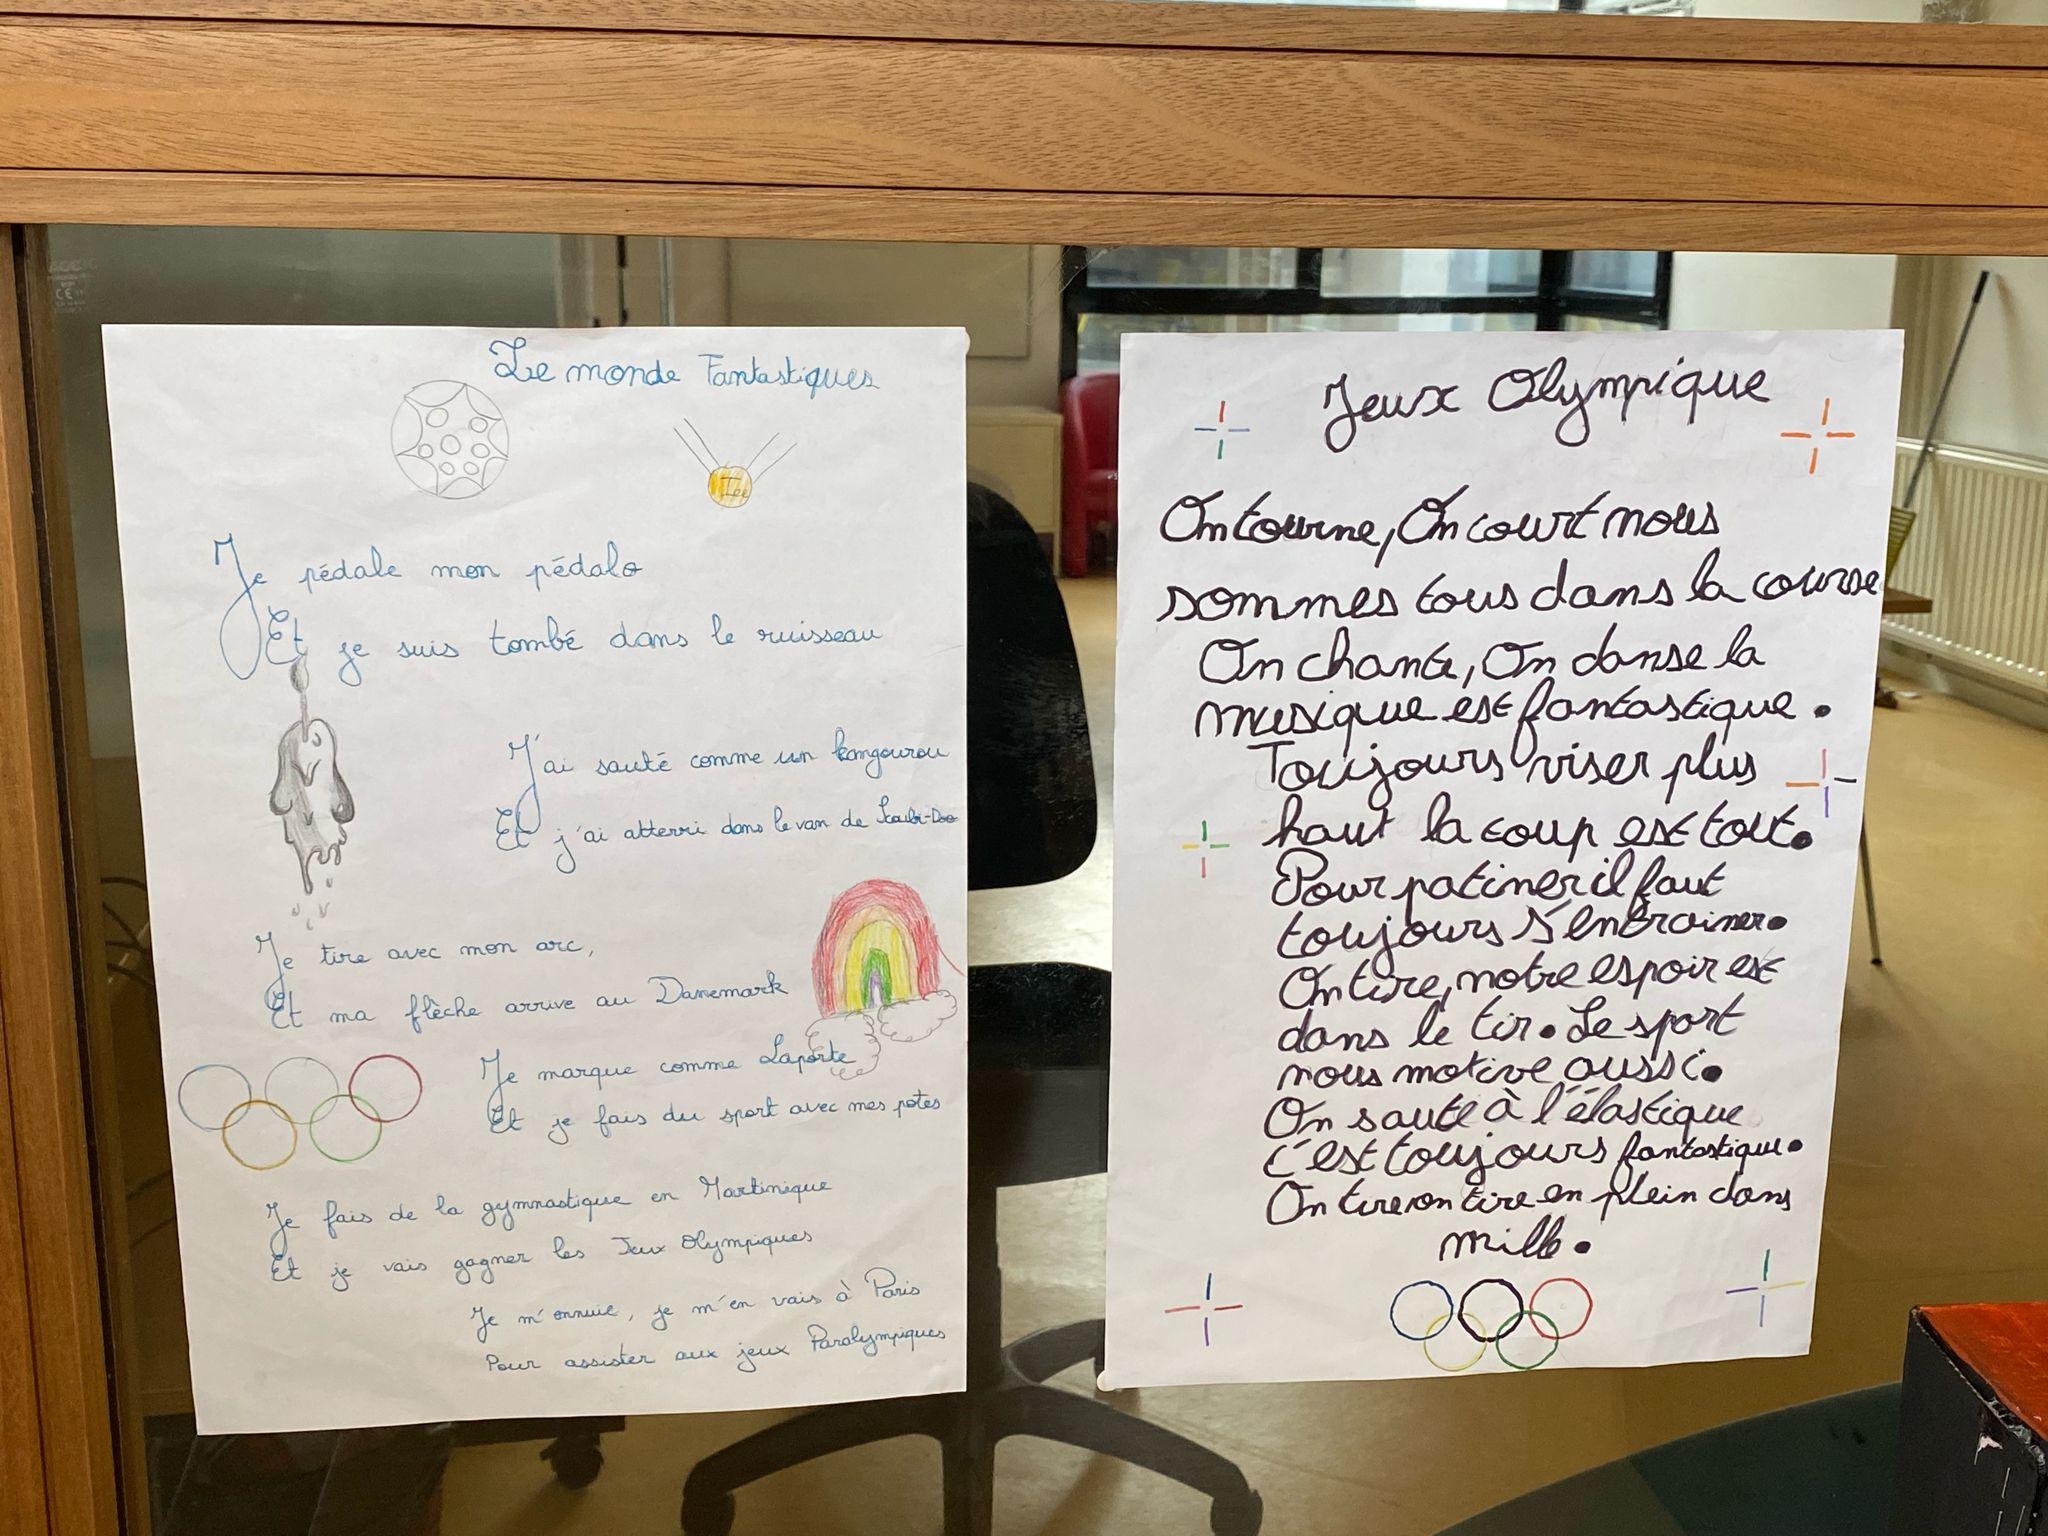 Le monde Fantastiques
Je pédale mon pédalo
Et je suis tombé dans le ruisseau
J'ai sauté comme un kangourou
Et j'ai atterri dans le van de Scoubi-Doo
Je tire avec mon arc,
Et ma flèche arrive au Danemark
Je marque comme Laporte
Et je fais du sport avec mes potes
Je fais de la gymnastique en Martinique
Et je vais gagner les Jeux Olympiques
Je m'ennuie, je m'en vais à Paris
Pour assister aux jeux Paralympiques
Jeux Olympique
On tourne, On court nous
sommes tous dans la course
On chante, On danse la
musique est fantastique.
Toujours viser plus
haut la coup est tout.
Pour patiner il faut
toujours s'entrainer.
On tire, notre espoir est
dans le tir. Le sport
nous motive aussi.
On saute à l'élastique
c'est toujours fantastique.
On tire on tire en plein dans
mille.